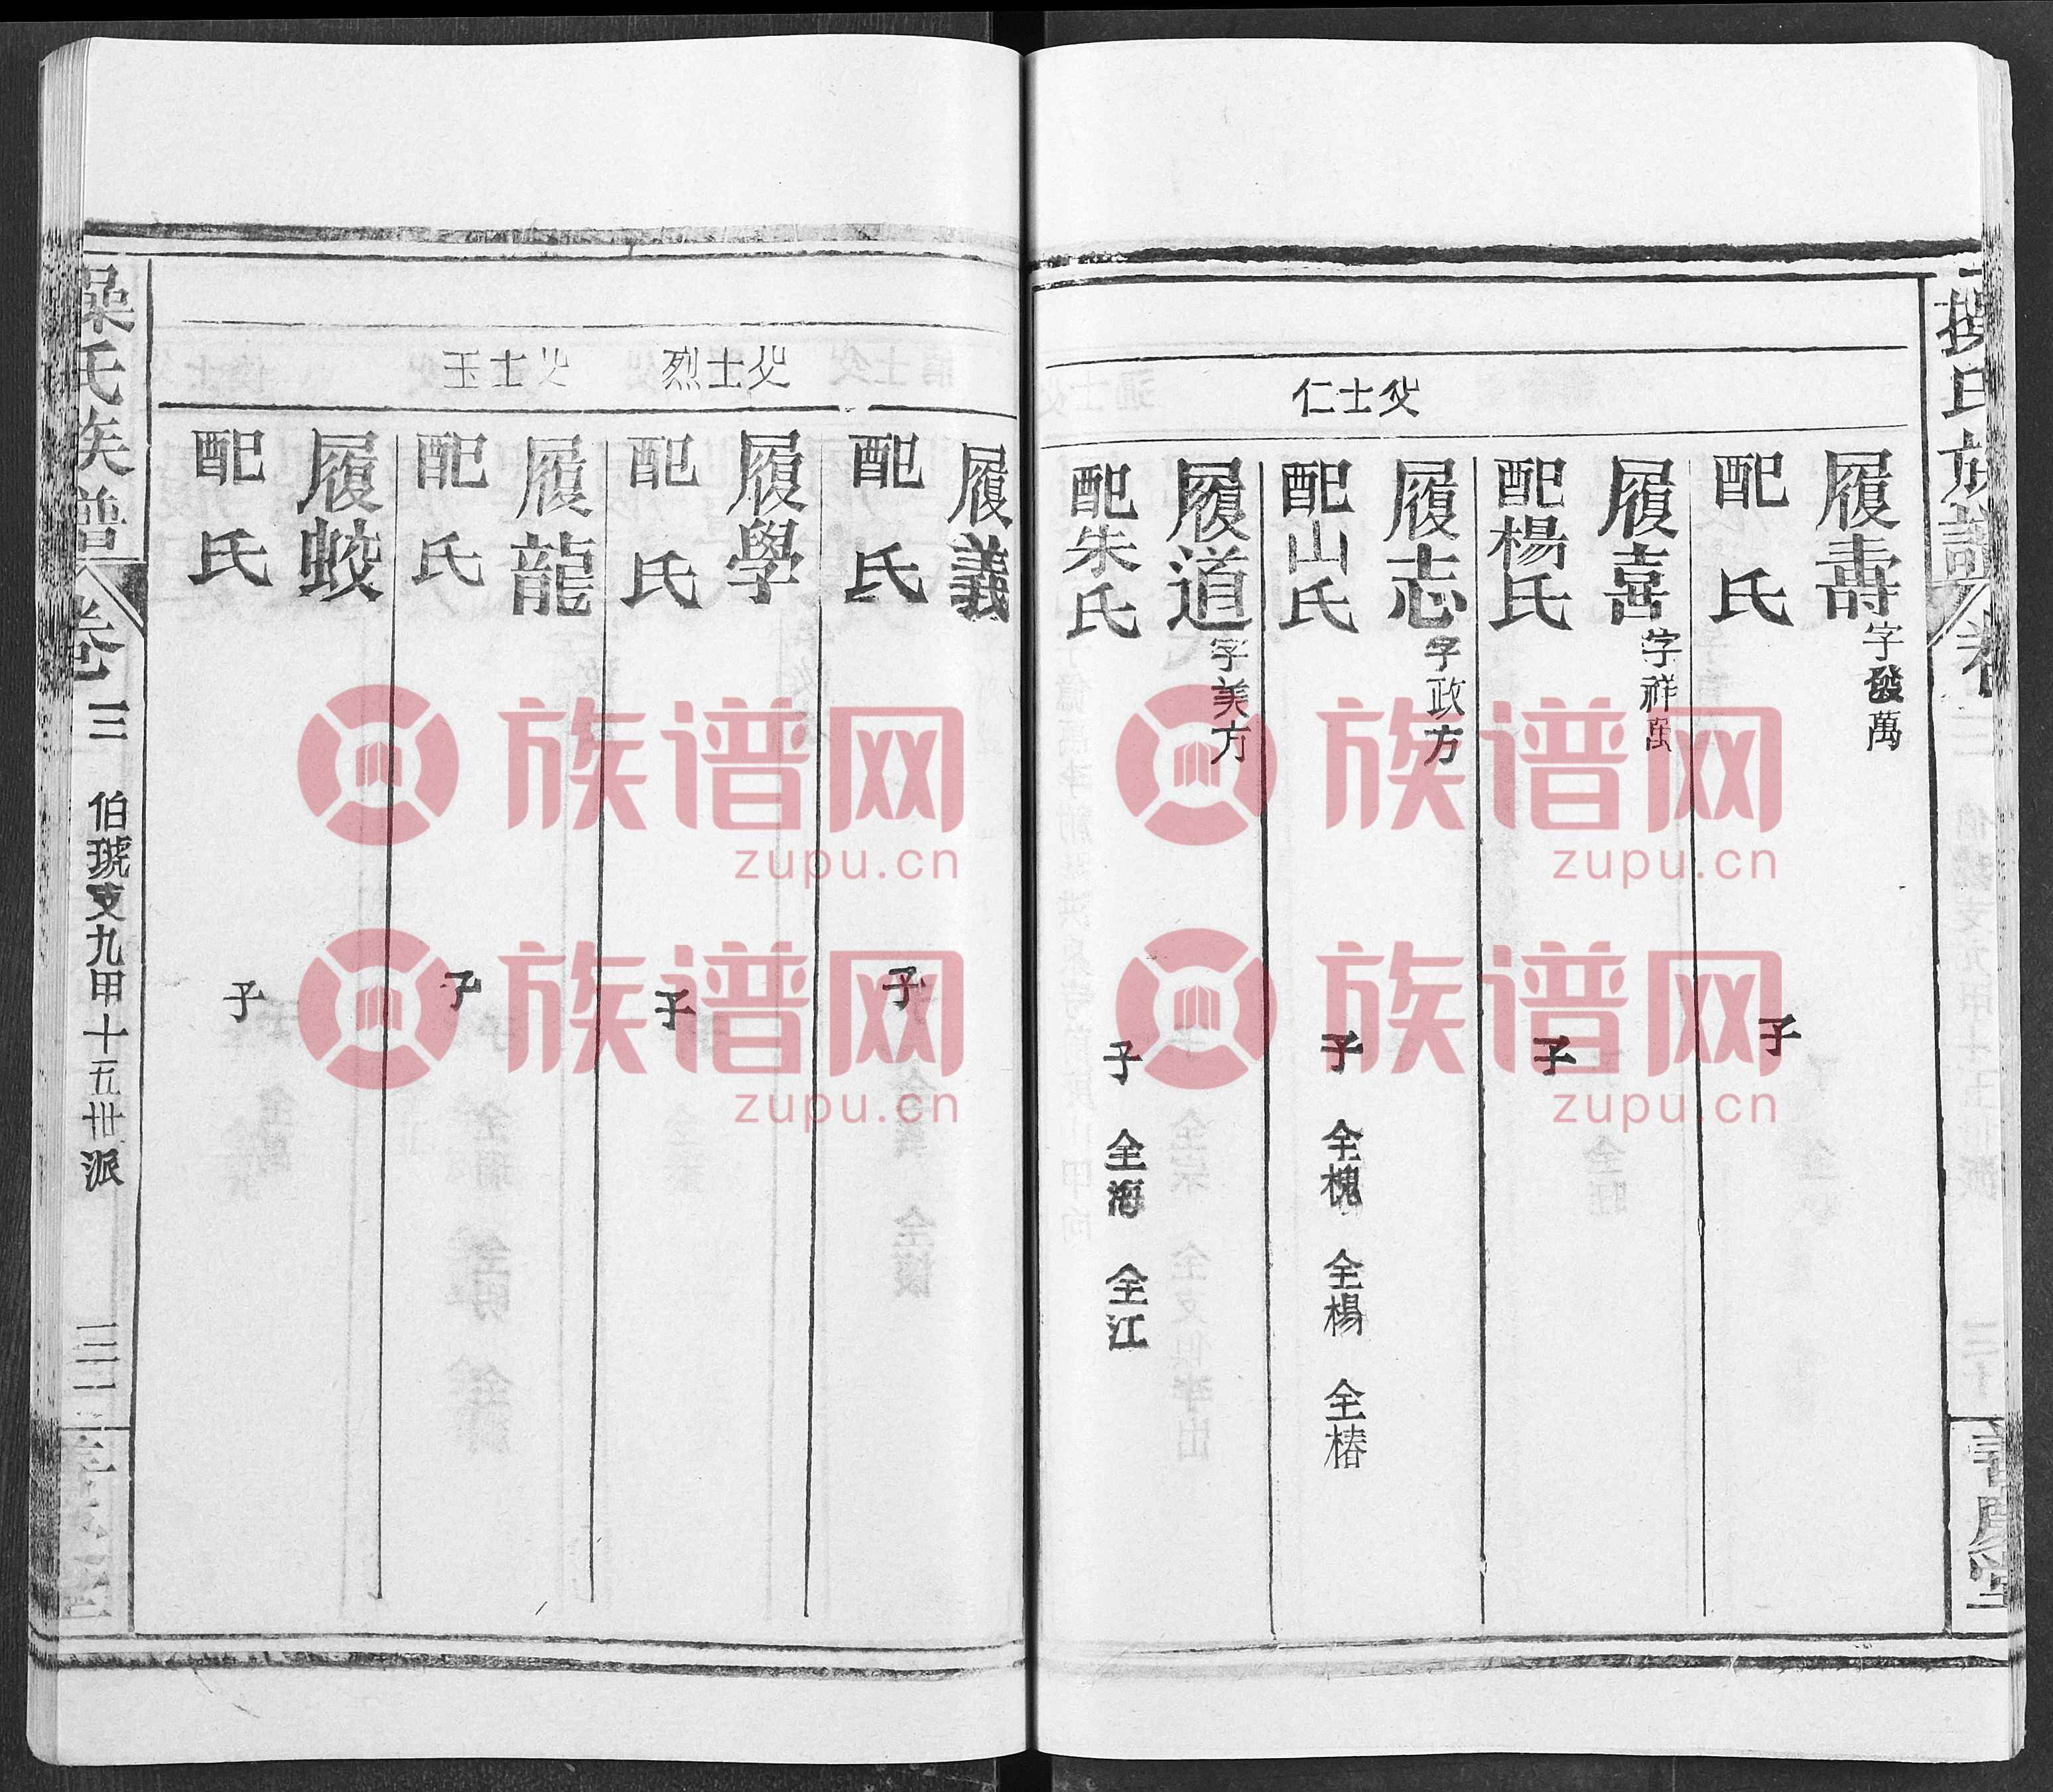 操氏族譜
父士仁
履壽字發萬
配 氏 子
履喜字祥萬
配楊氏 子
履志字政方
配山氏 子 全槐 全楊 全椿
履道字美方
配朱氏 子 全海 全江
履義
配 氏 子
父士烈
履學
配 氏 子
父士玉
履龍
配 氏 子
履蛟
配 氏 子
操氏族譜 卷三 伯琥支九甲十五卅派
族谱网
zupu.cn
族谱网
zupu.cn
族谱网
zupu.cn
族谱网
zupu.cn